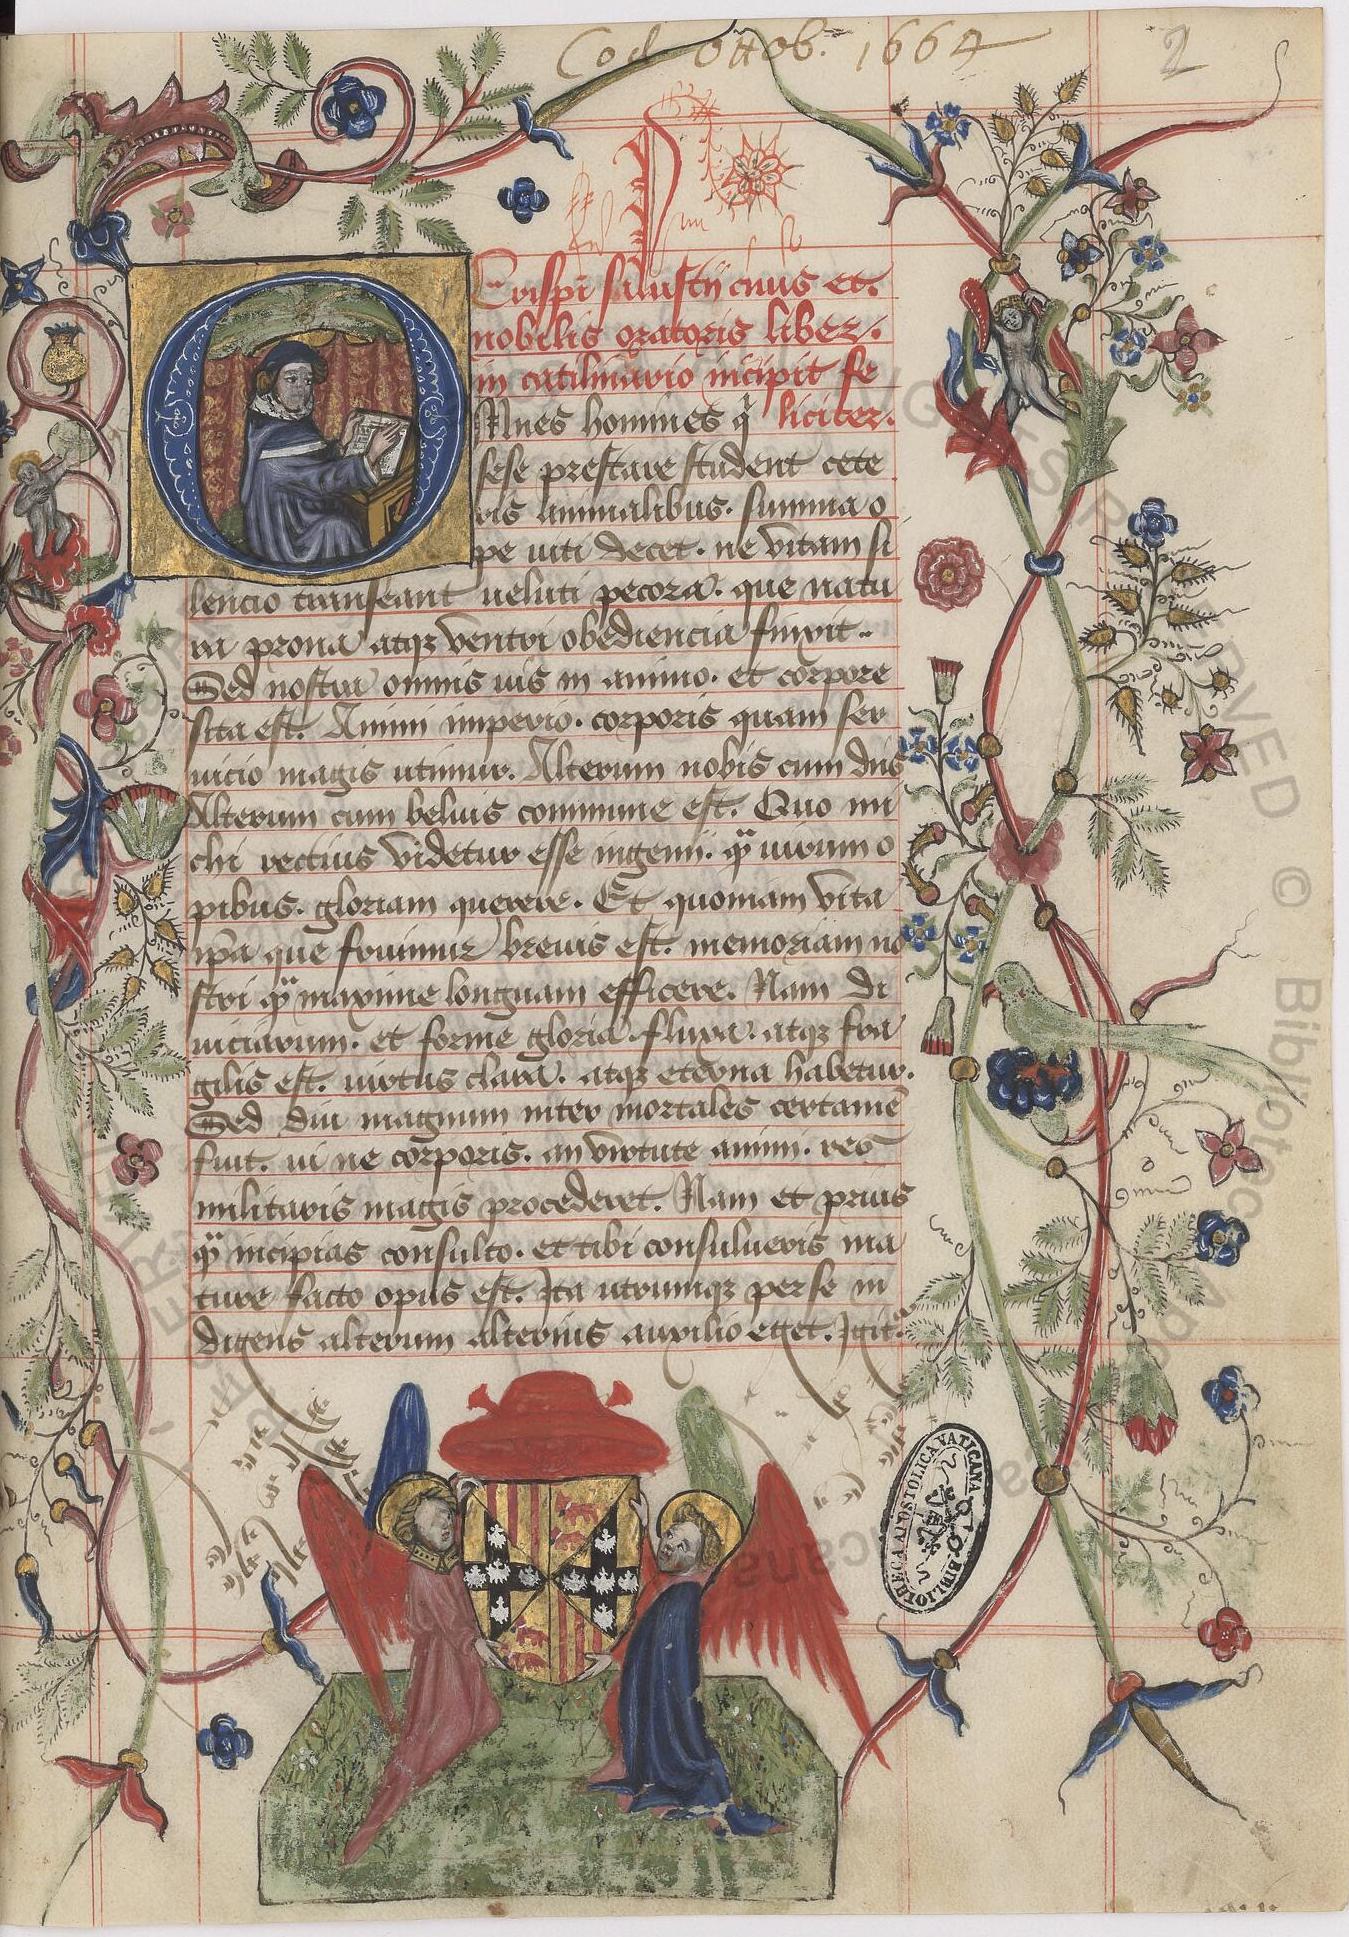 Cod. Ottob. 1664
2
Crispi salustij ciuis et.
nobilis oratoris liber.
in catilinario incipit fe
liciter.
OMnes homines q̄
sese prestare student cete
ris animalibus. summa o
pe niti decet. ne vitam si
lencio transeant ueluti pecora. que natu
ra prona atqꝫ ventri obediencia finxit.
Sed nostra omnis uis in animo. et corpore
sita est. Animi imperio. corporis quam ser
uicio magis utimur. Alterum nobis cum diis
Alterum cum beluis commune est. Quo mi
chi rectius videtur esse ingenij. qͣ uirium o
pibus. gloriam querere. Et quoniam vita
ip̄a que fruimur breuis est. memoriam no
stri qͣ maxime longuam efficere. Nam di
uiciarum. et forme gloria. fluxa. atqꝫ fra
gilis est. uirtus clara. atqꝫ eterna habetur.
Sed diu magnum inter mortales certamē
fuit. ui ne corporis. an virtute animi. res
militaris magis procederet. Nam et prius
qͣ incipias consulto. et ubi consulueris ma
ture facto opus est. Ita utrumqꝫ per se in
digens alterum alterius auxilio eget. Igit͛
BIBLIOTHECA APOSTOLICA VATICANA